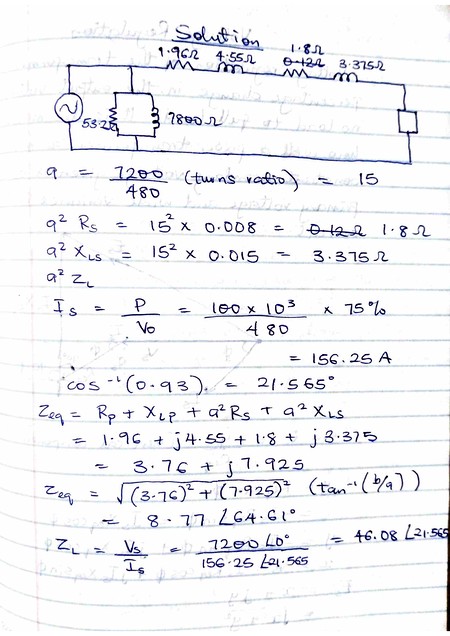 Solution
1.96Ω 4.55Ω 1.8Ω 0.12Ω 3.375Ω
53.2Ω 7800Ω
a = 7200/480 (turns ratio) = 15
a² Rs = 15² x 0.008 = 0.12Ω 1.8Ω
a² XLS = 15² x 0.015 = 3.375Ω
a² ZL
Is = P/Vo = 100 x 10³/480 x 75%
= 156.25 A
cos⁻¹(0.93). = 21.565°
Zeq = Rp + XLP + a²Rs + a² XLS
= 1.96 + j4.55 + 1.8 + j3.375
= 3.76 + j7.925
Zeq = √(3.76)² + (7.925)² (tan⁻¹(b/a))
= 8.77 ∠64.61°
ZL = Vs/Is = 7200∠0°/156.25∠21.565 = 46.08∠21.565